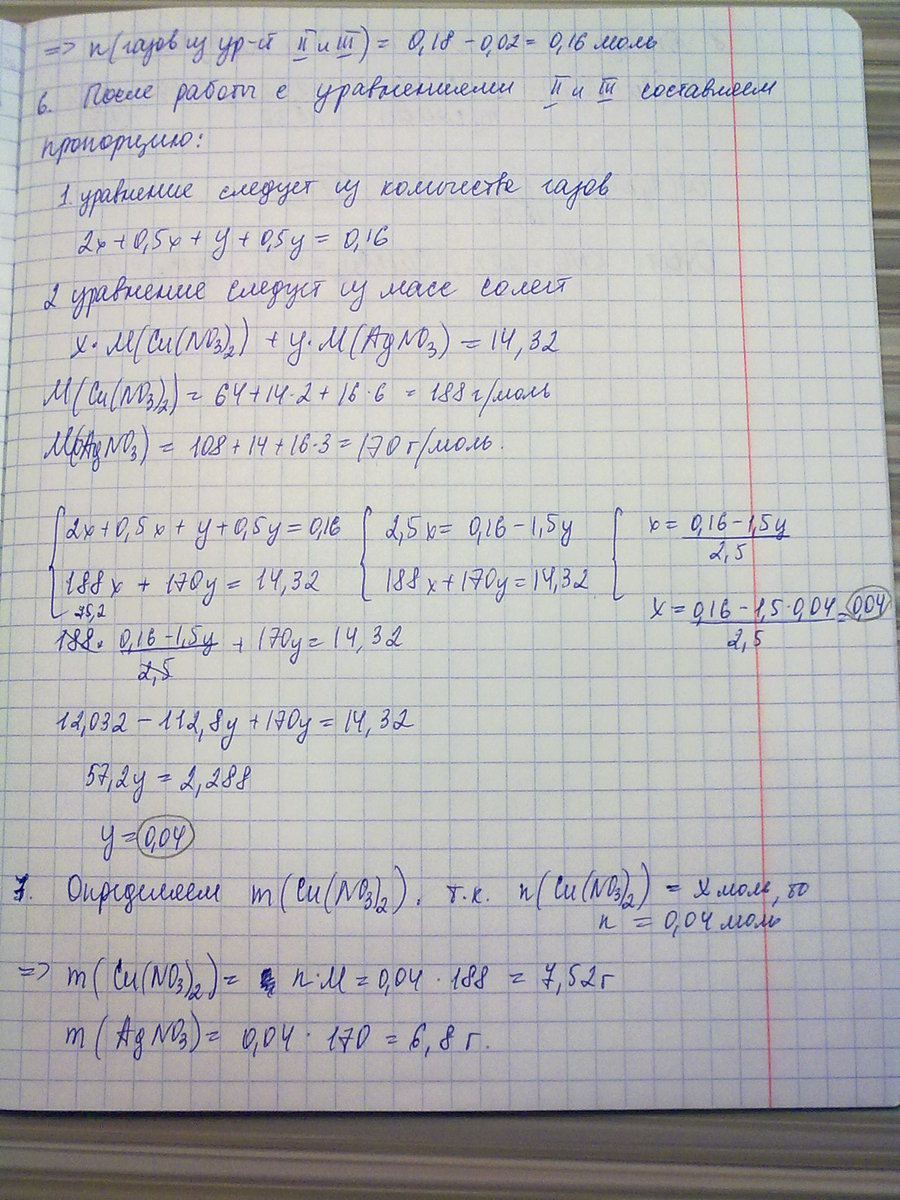 => n(газов из ур-й II и III) = 0,18 - 0,02 = 0,16 моль
6. После работы с уравнениями II и III составляем
пропорцию:
1 уравнение следует из количества газов
2x+0,5x+y+0,5y = 0,16
2 уравнение следует из масс солей
x·M(Cu(NO3)2) + y·M(AgNO3) = 14,32
M(Cu(NO3)2) = 64+14·2+16·6 = 188 г/моль
M(AgNO3) = 108+14+16·3 = 170 г/моль.
{ 2x+0,5x+y+0,5y=0,16 { 2,5x = 0,16-1,5y { x = 0,16-1,5y / 2,5
188x + 170y = 14,32 188x+170y=14,32 x = 0,16-1,5·0,04 / 2,5 = 0,04
75,2
188· 0,16-1,5y / 2,5 + 170y = 14,32
12,032 - 112,8y + 170y = 14,32
57,2y = 2,288
y = 0,04
7. Определяем m(Cu(NO3)2). т.к. n(Cu(NO3)2) = x моль, то
n = 0,04 моль
=> m(Cu(NO3)2) = n·M = 0,04 · 188 = 7,52 г
m(AgNO3) = 0,04 · 170 = 6,8 г.